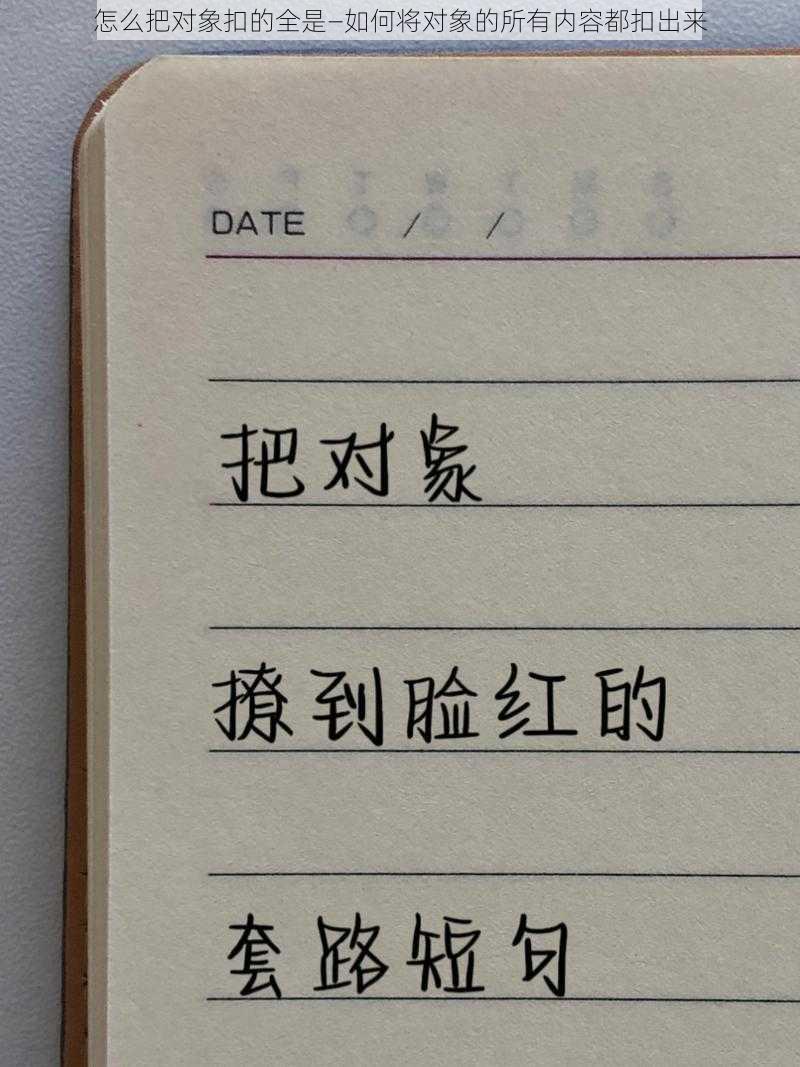 怎么把对象扣的全是—如何将对象的所有内容都扣出来
DATE / /
把对象
撩到脸红的
套路短句